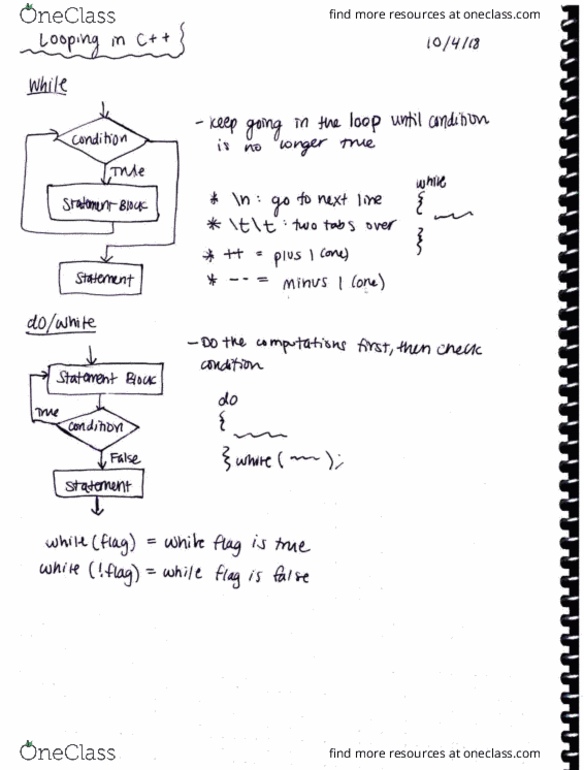 OneClass
find more resources at oneclass.com
Looping in C++
10/4/18
while
condition
True
Statement Block
Statement
- Keep going in the loop until condition
is no longer true
* \n : go to next line
* \t\t : two tabs over
* ++ = plus 1 (one)
* -- = minus 1 (one)
while
{
}
do/while
Statement Block
True
condition
False
Statement
- Do the computations first, then check
condition
do
{
} while ( );
while (flag) = while flag is true
while (!flag) = while flag is false
OneClass
find more resources at oneclass.com